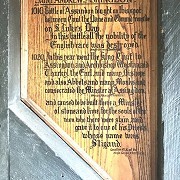 SAINT ANDREW ASHINGDON
1016 Battle of Assandun fought on this spot
between Canut the Dane and Edmund Ironside
on S. Luke's Day.
In this battle all the nobility of
the English race was destroyed.
1020 In this year went the King Canut to
Assandun and Archbishop Wulfstan and
Thurkyl the Earl and many bishops
and also abbots and many Monks and
consecrated the Minster at Assandun
and caused to be built there a Minster
of stone and lime, for the souls of the
men who there were slain, and
gave it to one of his Priests
whose name was
Stigand.